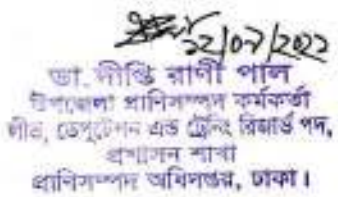 22/07/2022
ডা. দীপ্তি রাণী পাল
উপজেলা প্রাণিসম্পদ কর্মকর্তা
লীভ, ডেপুটেশন এন্ড ট্রেনিং রিজার্ভ পদ,
প্রশাসন শাখা
প্রাণিসম্পদ অধিদপ্তর, ঢাকা।